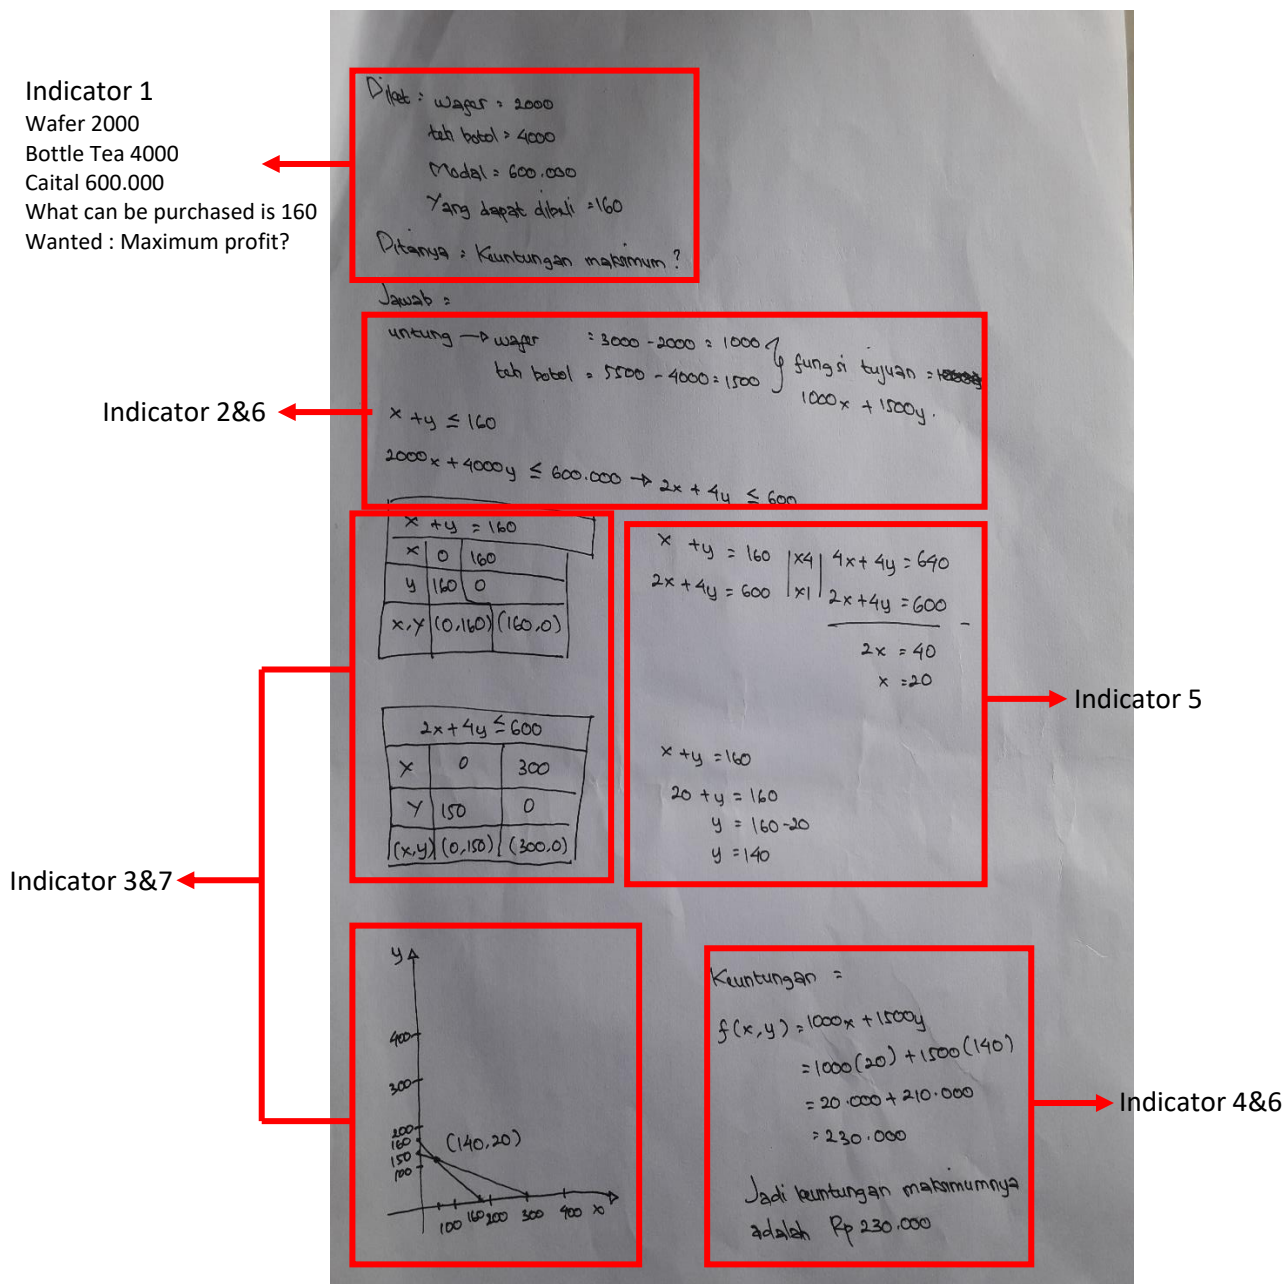 Indicator 1
Wafer 2000
Bottle Tea 4000
Caital 600.000
What can be purchased is 160
Wanted : Maximum profit?
Diket : Wafer = 2000
teh botol = 4000
Modal = 600.000
Yang dapat dibeli = 160
Ditanya = Keuntungan maksimum ?
Jawab =
Indicator 2&6
untung → wafer = 3000 - 2000 = 1000
teh botol = 5500 - 4000 = 1500
fungsi tujuan =
1000x + 1500y.
x + y ≤ 160
2000x + 4000y ≤ 600.000 → 2x + 4y ≤ 600
Indicator 3&7
x + y = 160
x 0 160
y 160 0
x,y (0,160) (160,0)
2x + 4y ≤ 600
X 0 300
Y 150 0
(x,y) (0,150) (300,0)
x + y = 160 |x4| 4x + 4y = 640
2x + 4y = 600 |x1| 2x + 4y = 600 -
2x = 40
x = 20
x + y = 160
20 + y = 160
y = 160-20
y = 140
Indicator 5
y
400
300
200
160
150
100
(140,20)
100 160 200 300 400 x
Keuntungan =
f(x,y) = 1000x + 1500y
= 1000(20) + 1500(140)
= 20.000 + 210.000
= 230.000
Jadi keuntungan maksimumnya
adalah Rp 230.000
Indicator 4&6